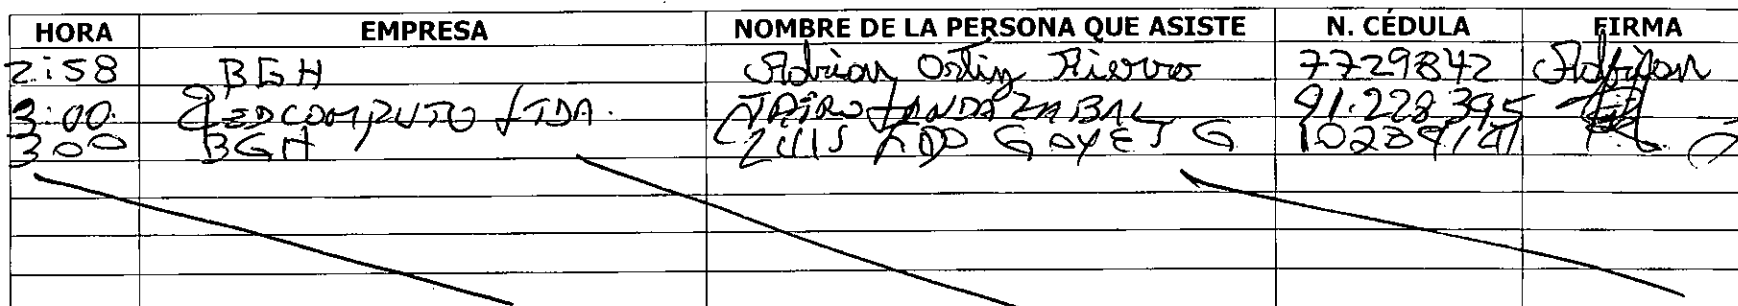 HORA EMPRESA NOMBRE DE LA PERSONA QUE ASISTE N. CÉDULA FIRMA
2:58 BGH Adrian Ortiz Fierro 7729842 Adrian
3:00 REDCOMPUTO LTDA. JAIRO LANDAZABAL 91.228.395
3:00 BGH LUIS FDO GOYES G